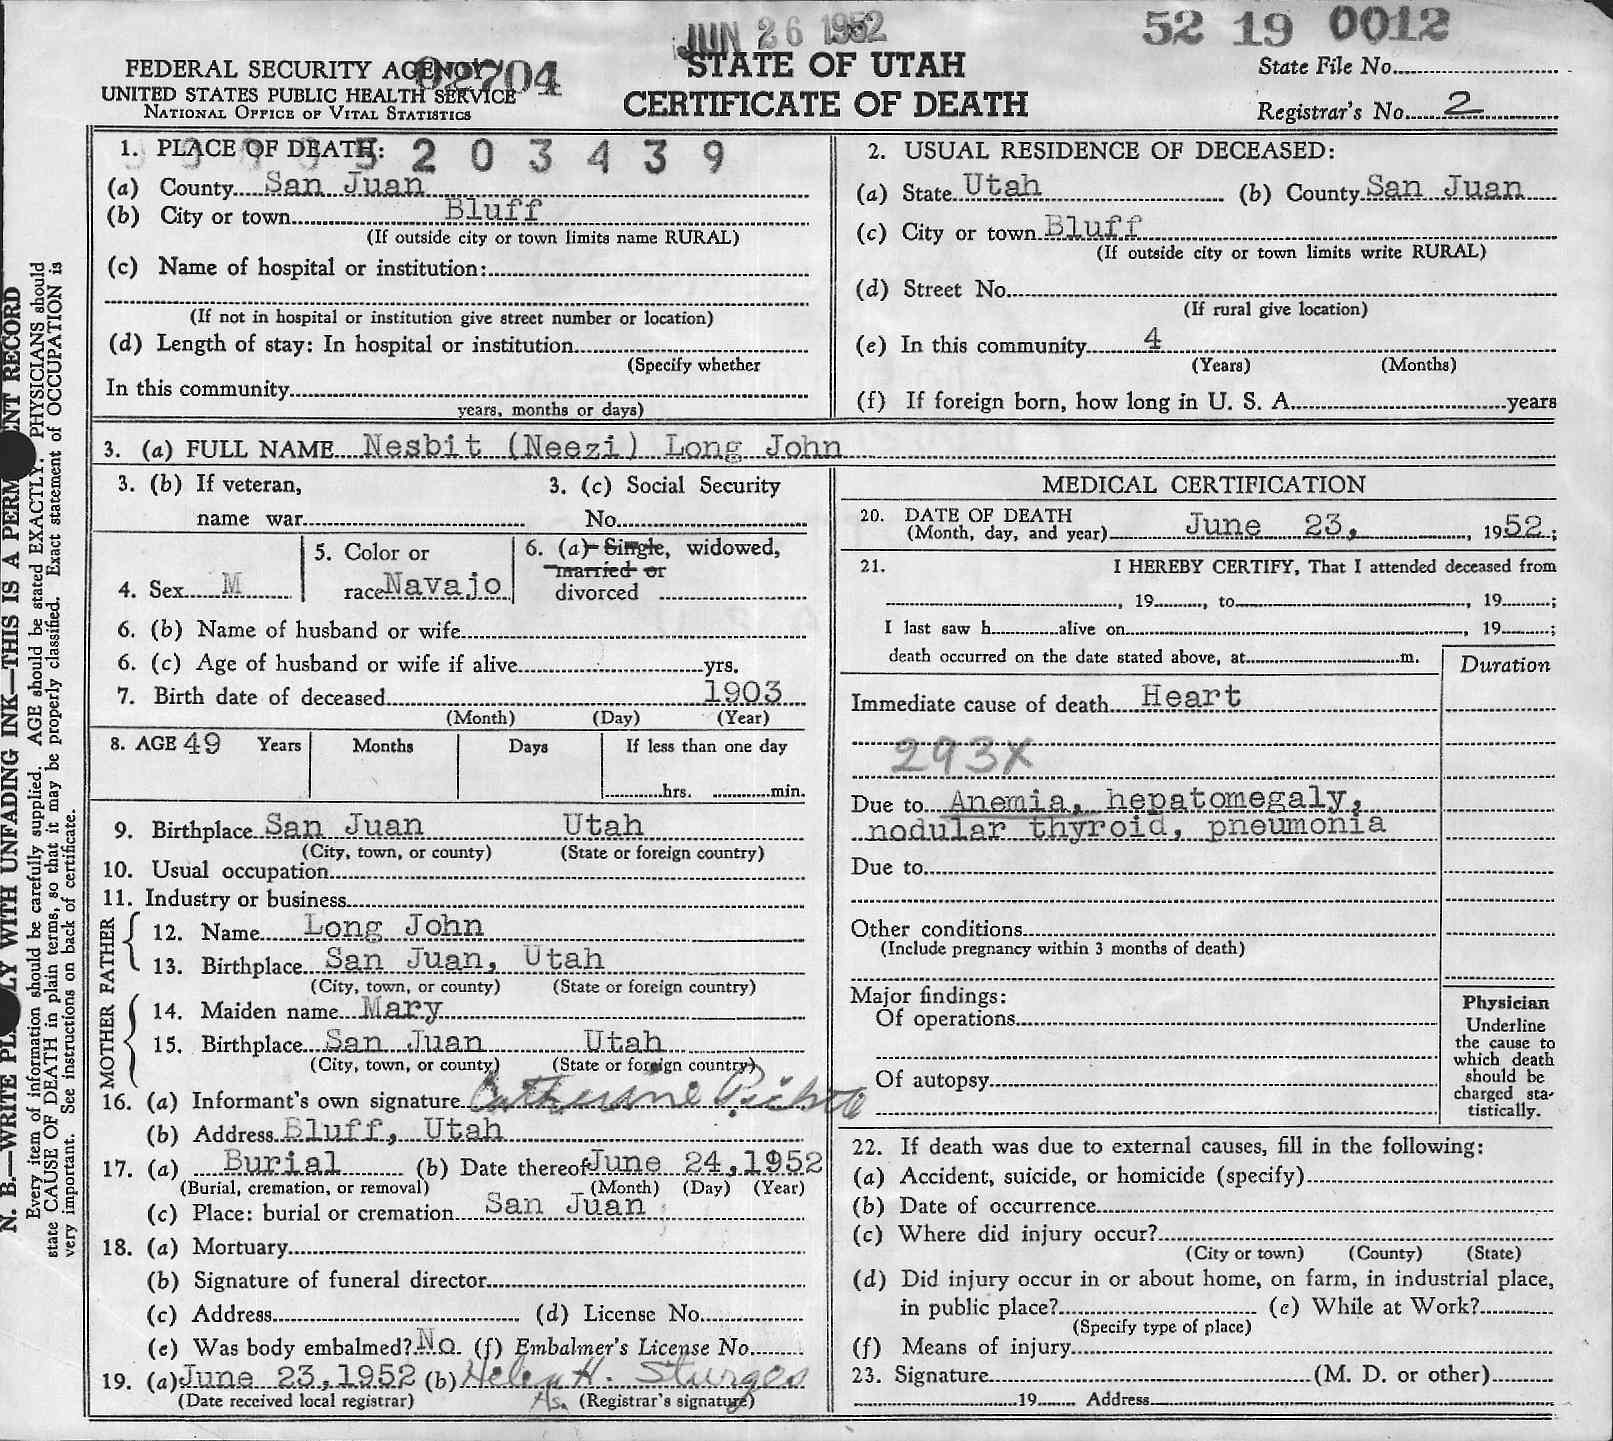 JUN 26 1952
52 19 0012
FEDERAL SECURITY AGENCY 02704
UNITED STATES PUBLIC HEALTH SERVICE
NATIONAL OFFICE OF VITAL STATISTICS
STATE OF UTAH
CERTIFICATE OF DEATH
State File No.
Registrar's No. 2
N. B.—WRITE PLAINLY WITH UNFADING INK—THIS IS A PERMANENT RECORD
Every item of information should be carefully supplied. AGE should be stated EXACTLY. PHYSICIANS should
state CAUSE OF DEATH in plain terms, so that it may be properly classified. Exact statement of OCCUPATION is
very important. See instructions on back of certificate.
1. PLACE OF DEATH: 203439
(a) County San Juan
(b) City or town Bluff
(If outside city or town limits name RURAL)
(c) Name of hospital or institution:
(If not in hospital or institution give street number or location)
(d) Length of stay: In hospital or institution
(Specify whether
In this community
years, months or days)
2. USUAL RESIDENCE OF DECEASED:
(a) State Utah (b) County San Juan
(c) City or town Bluff
(If outside city or town limits write RURAL)
(d) Street No.
(If rural give location)
(e) In this community 4
(Years) (Months)
(f) If foreign born, how long in U. S. A. years
3. (a) FULL NAME Nesbit (Neezi) Long John
3. (b) If veteran,
name war
3. (c) Social Security
No.
4. Sex M
5. Color or
race Navajo
6. (a) Single, widowed,
married or
divorced
6. (b) Name of husband or wife
6. (c) Age of husband or wife if alive yrs.
7. Birth date of deceased 1903
(Month) (Day) (Year)
8. AGE 49 Years Months Days If less than one day
hrs. min.
9. Birthplace San Juan Utah
(City, town, or county) (State or foreign country)
10. Usual occupation
11. Industry or business
FATHER
12. Name Long John
13. Birthplace San Juan, Utah
(City, town, or county) (State or foreign country)
MOTHER
14. Maiden name Mary
15. Birthplace San Juan Utah
(City, town, or county) (State or foreign country)
16. (a) Informant's own signature Catherine
(b) Address Bluff, Utah
17. (a) Burial (b) Date thereof June 24, 1952
(Burial, cremation, or removal) (Month) (Day) (Year)
(c) Place: burial or cremation San Juan
18. (a) Mortuary
(b) Signature of funeral director
(c) Address (d) License No.
(e) Was body embalmed? No. (f) Embalmer's License No.
19. (a) June 23, 1952 (b) Helen H. Sturges
(Date received local registrar) As. (Registrar's signature)
MEDICAL CERTIFICATION
20. DATE OF DEATH
(Month, day, and year) June 23, 1952;
21. I HEREBY CERTIFY, That I attended deceased from
, 19 , to , 19 ;
I last saw h alive on , 19 ;
death occurred on the date stated above, at m.
Duration
Immediate cause of death Heart
293X
Due to Anemia, hepatomegaly,
nodular thyroid, pneumonia
Due to
Other conditions
(Include pregnancy within 3 months of death)
Major findings:
Of operations
Of autopsy
Physician
Underline
the cause to
which death
should be
charged sta-
tistically.
22. If death was due to external causes, fill in the following:
(a) Accident, suicide, or homicide (specify)
(b) Date of occurrence
(c) Where did injury occur?
(City or town) (County) (State)
(d) Did injury occur in or about home, on farm, in industrial place,
in public place? (e) While at Work?
(Specify type of place)
(f) Means of injury
23. Signature (M. D. or other)
19 Address